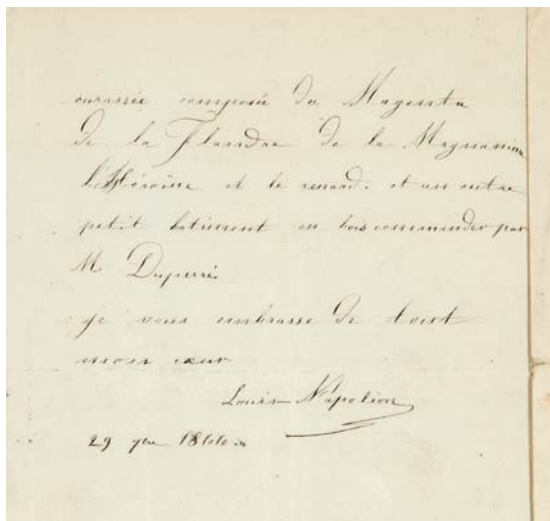 curassée composée du Magenta
de la Flandre de la Magnanime
l'Héroïne et le renard. et un autre
petit batiment en bois commander par
M. Duperré
je vous embrasse de tout
mon cœur
Louis-Napoléon
29 1866